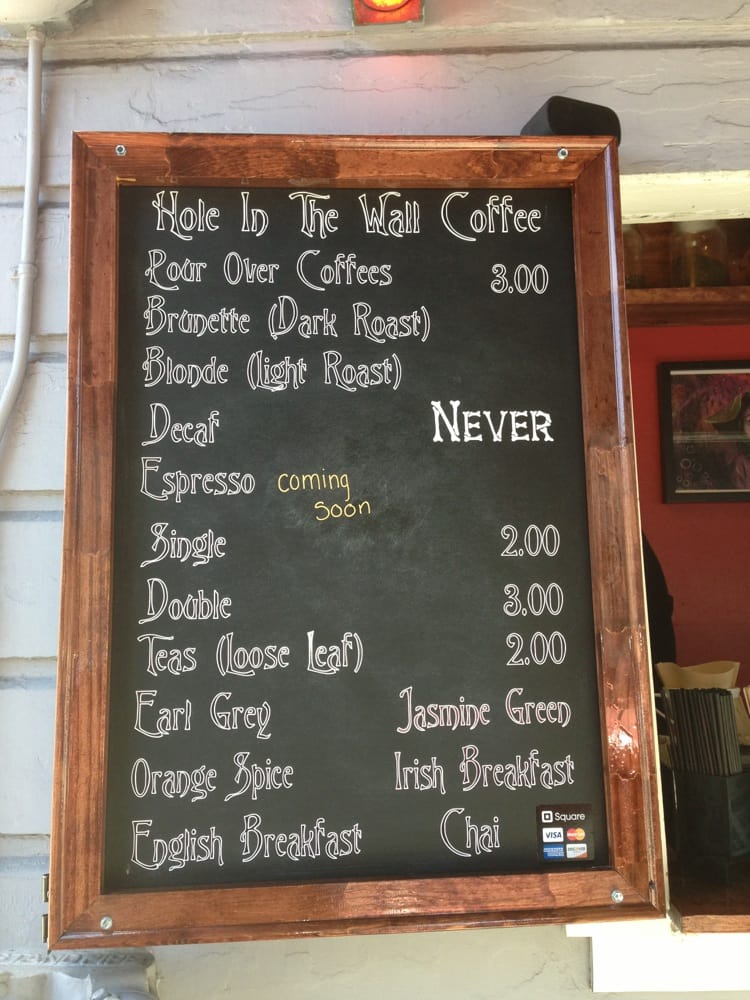 Hole In The Wall Coffee
Pour Over Coffees 3.00
Brunette (Dark Roast)
Blonde (Light Roast)
Decaf NEVER
Espresso coming soon
Single 2.00
Double 3.00
Teas (Loose Leaf) 2.00
Earl Grey Jasmine Green
Orange Spice Irish Breakfast
English Breakfast Chai
Square
VISA MasterCard